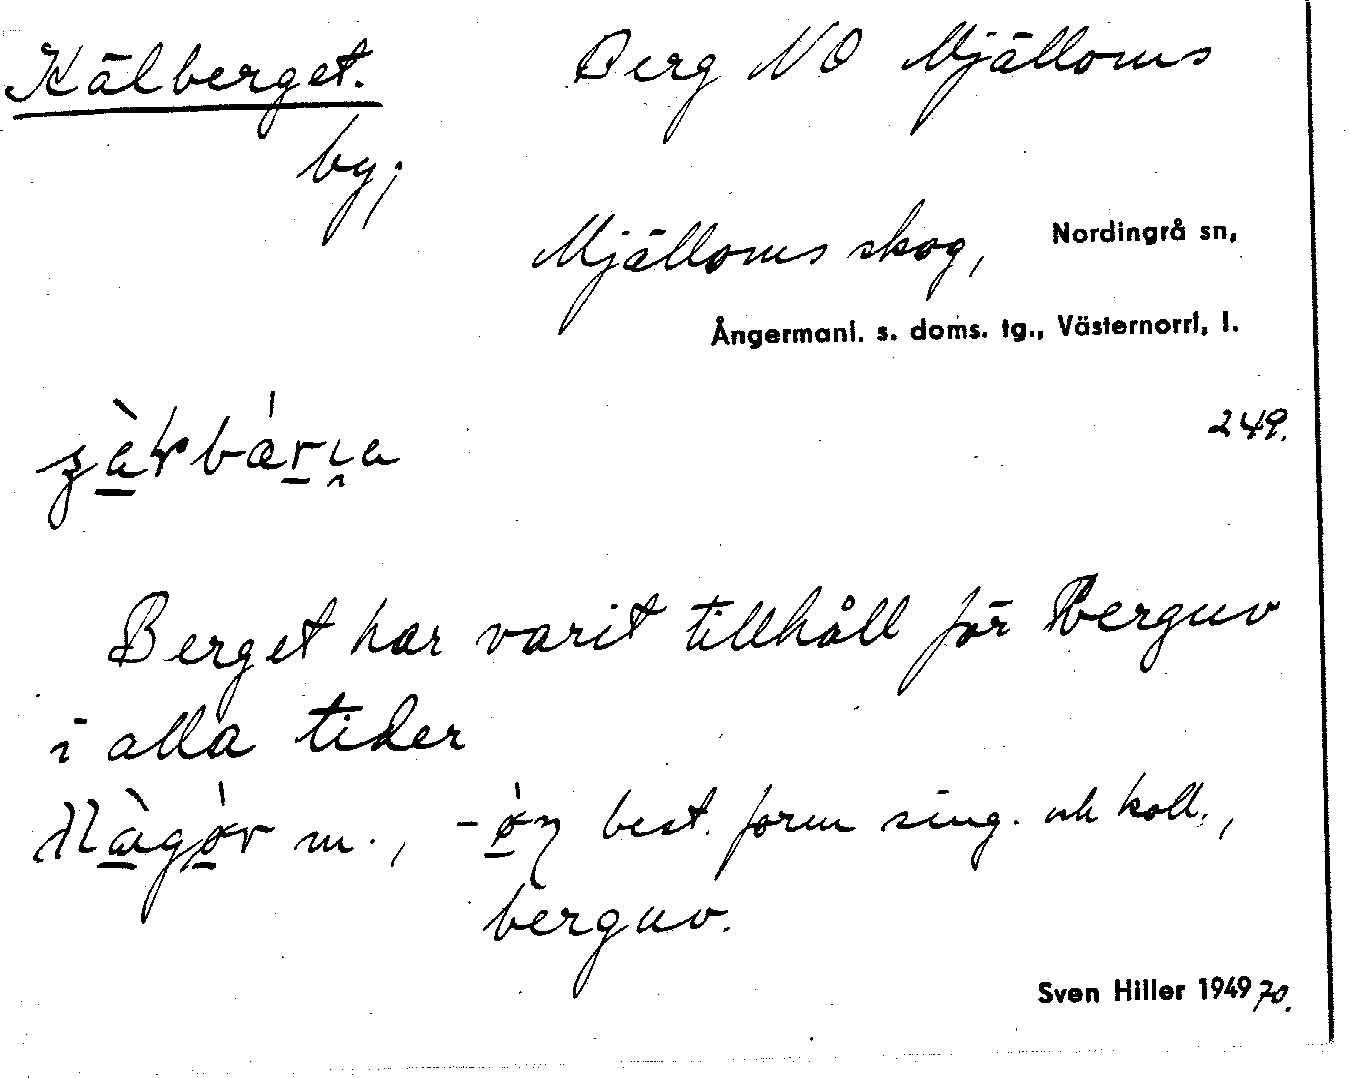 Kälberget.
Berg NO Mjälloms
by;
Mjälloms skog, Nordingrå sn,
Ångermanl. s. doms. tg., Västernorrl. l.
249.
Berget har varit tillhåll för berguv
i alla tider
m., best. form sing. och koll.,
berguv.
Sven Hiller 1949 70.